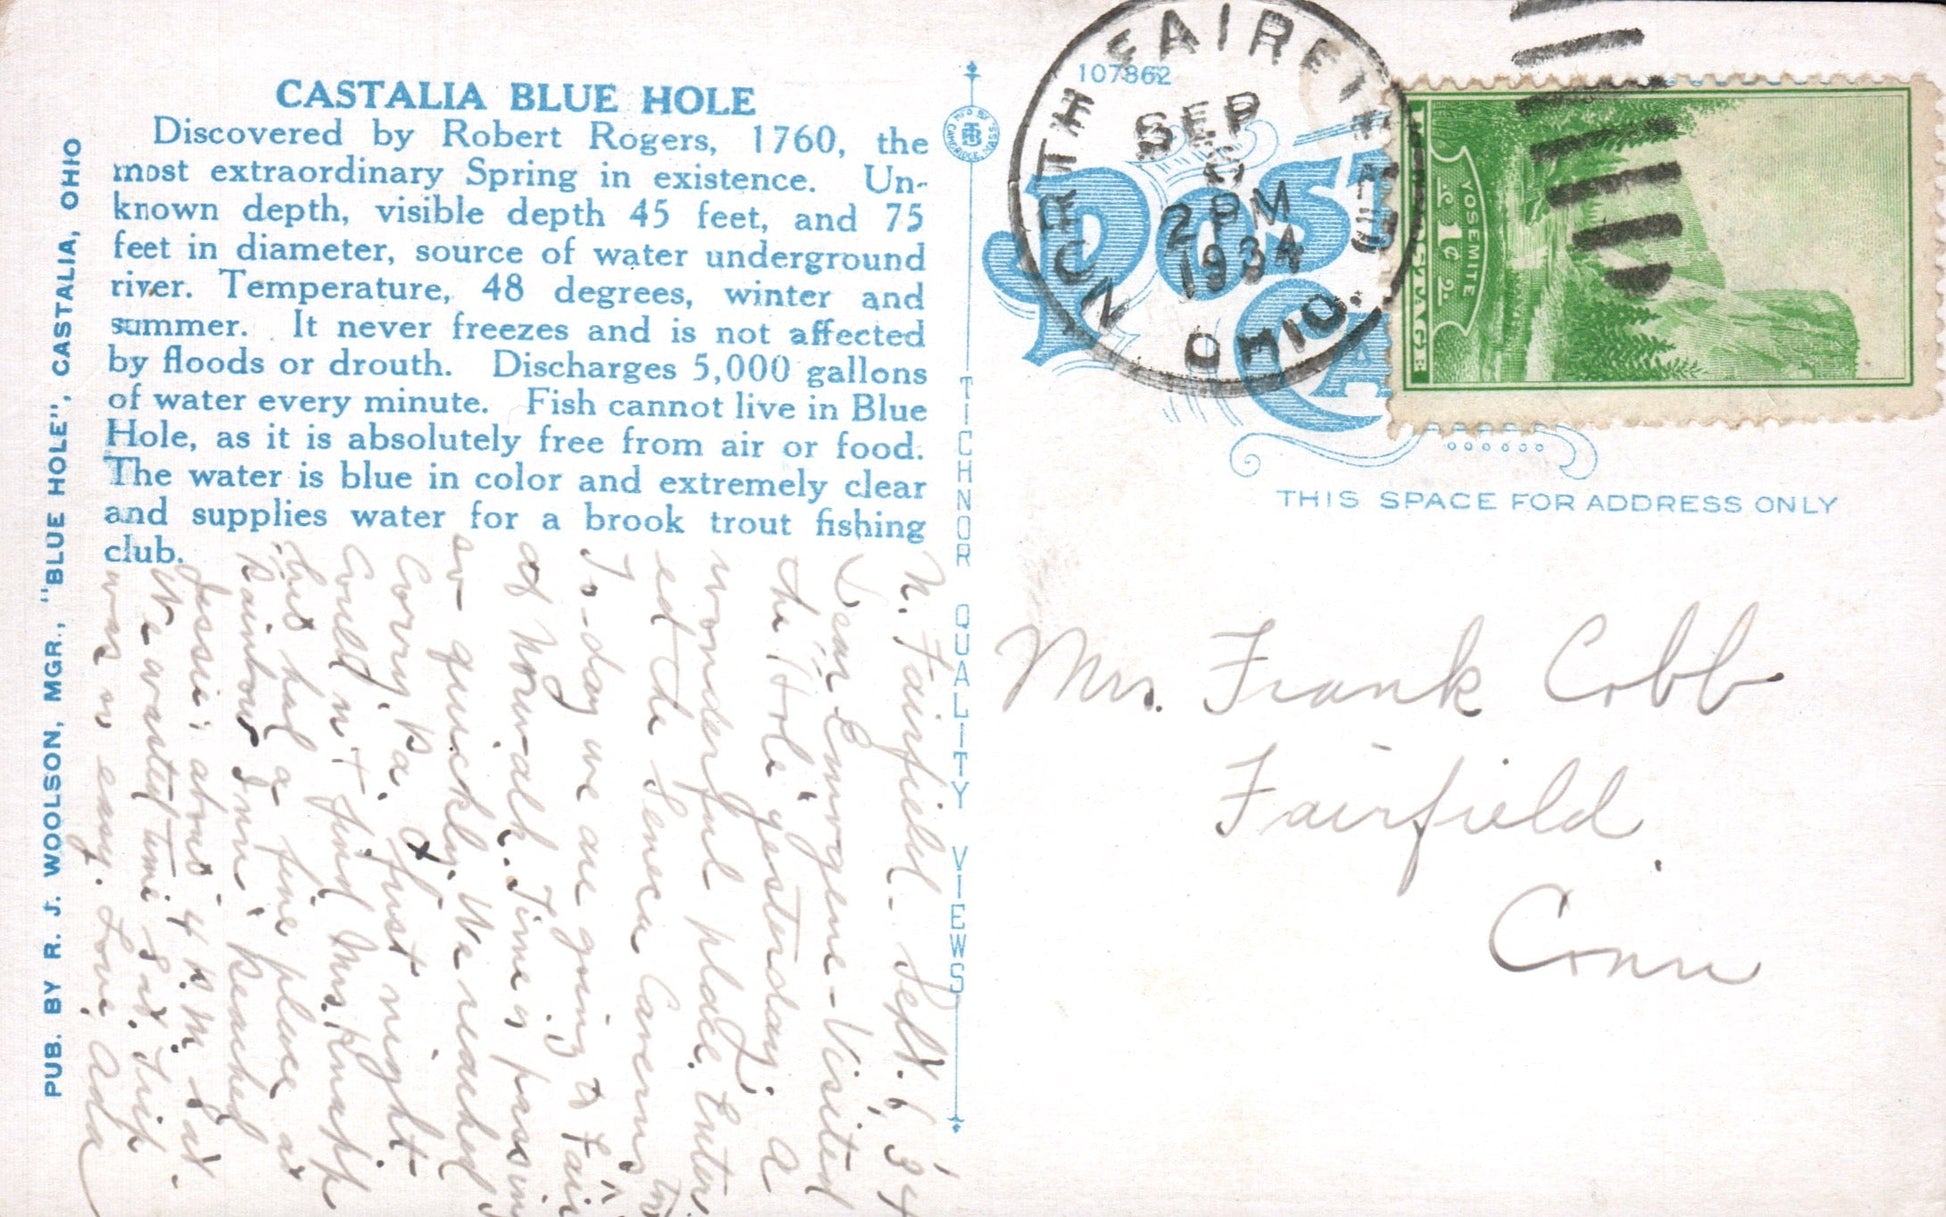 CASTALIA BLUE HOLE
Discovered by Robert Rogers, 1760, the
most extraordinary Spring in existence. Un-
known depth, visible depth 45 feet, and 75
feet in diameter, source of water underground
river. Temperature, 48 degrees, winter and
summer. It never freezes and is not affected
by floods or drouth. Discharges 5,000 gallons
of water every minute. Fish cannot live in Blue
Hole, as it is absolutely free from air or food.
The water is blue in color and extremely clear
and supplies water for a brook trout fishing
club.
PUB. BY R. J. WOOLSON, MGR., "BLUE HOLE", CASTALIA, OHIO
N. Fairfield - Sept. 6, '34
Dear Emogene - Visited
the "Hole" yesterday; a
wonderful place. Enter
ed the Seneca Caverns too
To-day we are going to Fair
of Norwalk. Time is passing
so quickly. We reached
Corry Pa. first night -
Couldn't find Mrs. Knapp
but had a fine place at
Rainbow Inn; Reached
Jessie's about 4 P.M. Sat.
We wasted time Sat. trip
was so easy. Love, Ada
TICHNOR QUALITY VIEWS
107862
POST CA
NORTH FAIRFIELD
SEP
2 PM
1934
OHIO.
YOSEMITE
1c 1¢ 2.
POSTAGE
THIS SPACE FOR ADDRESS ONLY
Mrs. Frank Cobb
Fairfield,
Conn